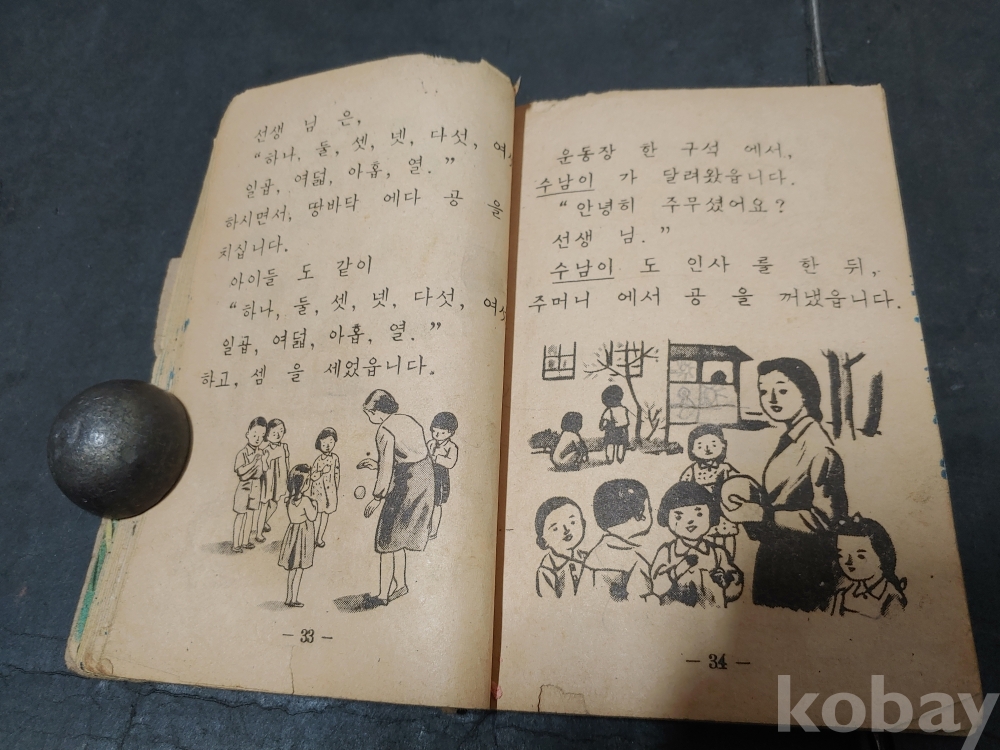 선생 님 은,
“하나, 둘, 셋, 넷, 다섯,
일곱, 여덟, 아홉, 열.”
하시면서, 땅바닥 에다 공 을
치십니다.
아이들 도 같이
“하나, 둘, 셋, 넷, 다섯,
일곱, 여덟, 아홉, 열.”
하고, 셈 을 세었읍니다.
— 33 —
운동장 한 구석 에서,
수남이 가 달려왔읍니다.
“안녕히 주무셨어요?
선생 님.”
수남이 도 인사 를 한 뒤,
주머니 에서 공 을 꺼냈읍니다.
— 34 —
kobay